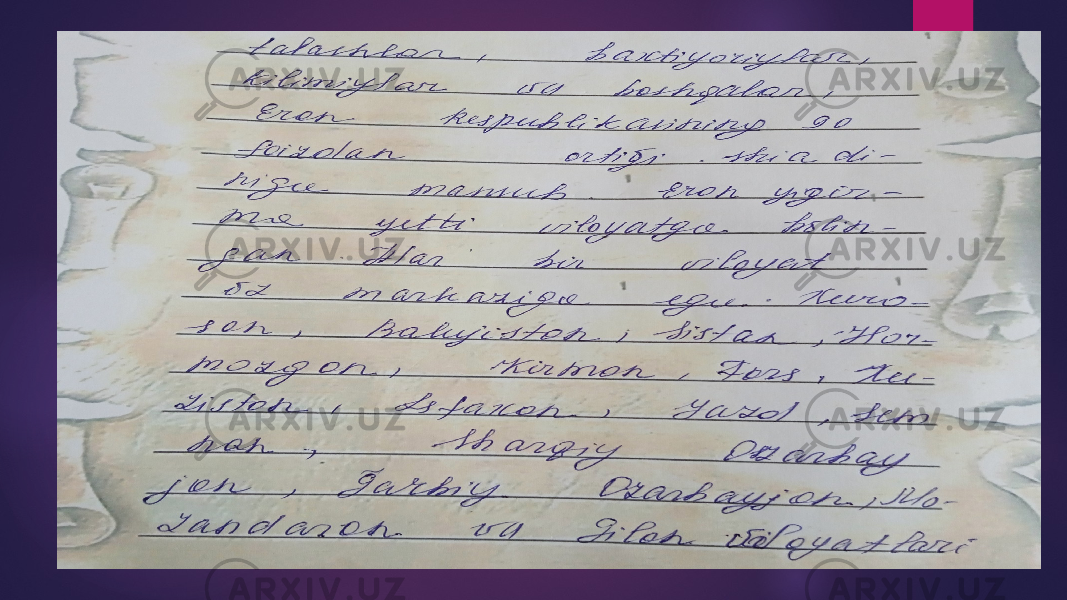 talashlar, baxtiyoriylar,
kilimiylar va boshqalar,
Eron Respublikasining 90
foizdan ortiği shia di-
niga mansub. Eron yigir-
ma yetti viloyatga bölin-
gan Har bir viloyat
öz markaziga ega. Xuro-
son, Balujiston, Siston, Hor-
mozgon, Kirmon, Fors, Xu-
ziston, Isfaxon, Yazd, Sem
non, Sharqiy Ozarbay
jon, Ğarbiy Ozarbayjon, Mo-
zandaron va Gilon viloyatlari
ARXIV.UZ
ARXIV.UZ
ARXIV.UZ
ARXIV.UZ
ARXIV.UZ
ARXIV.UZ
ARXIV.UZ
ARXIV.UZ